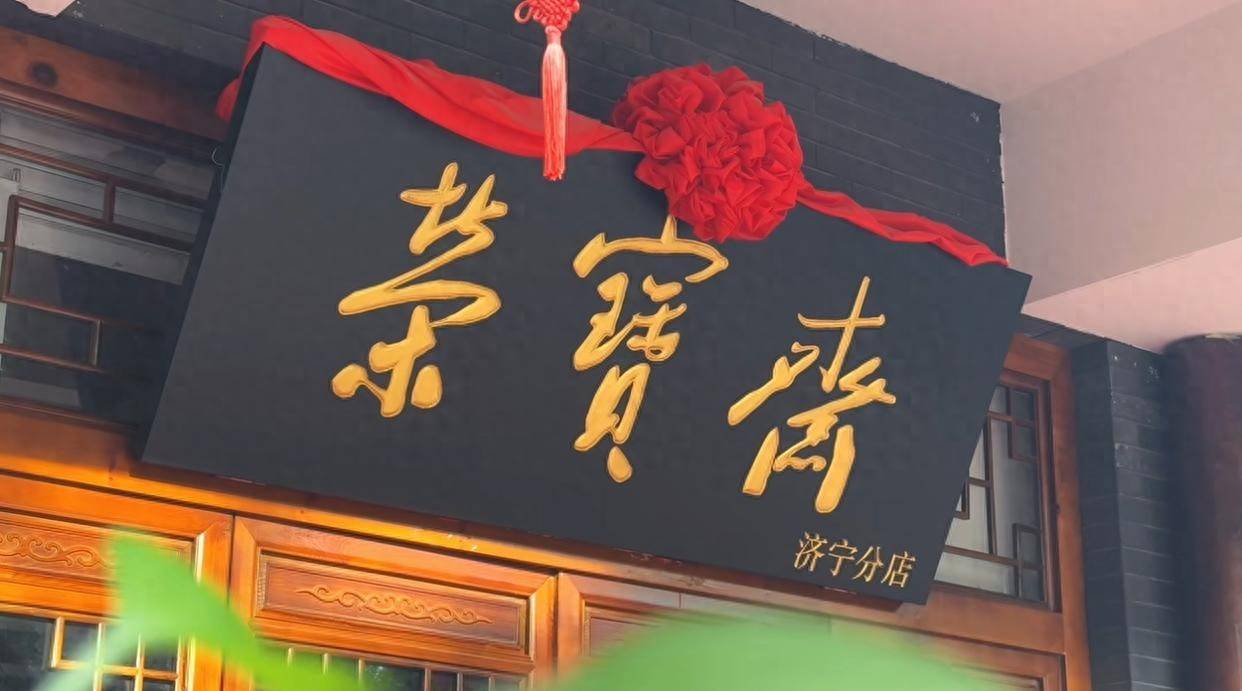 荣宝斋
济宁分店